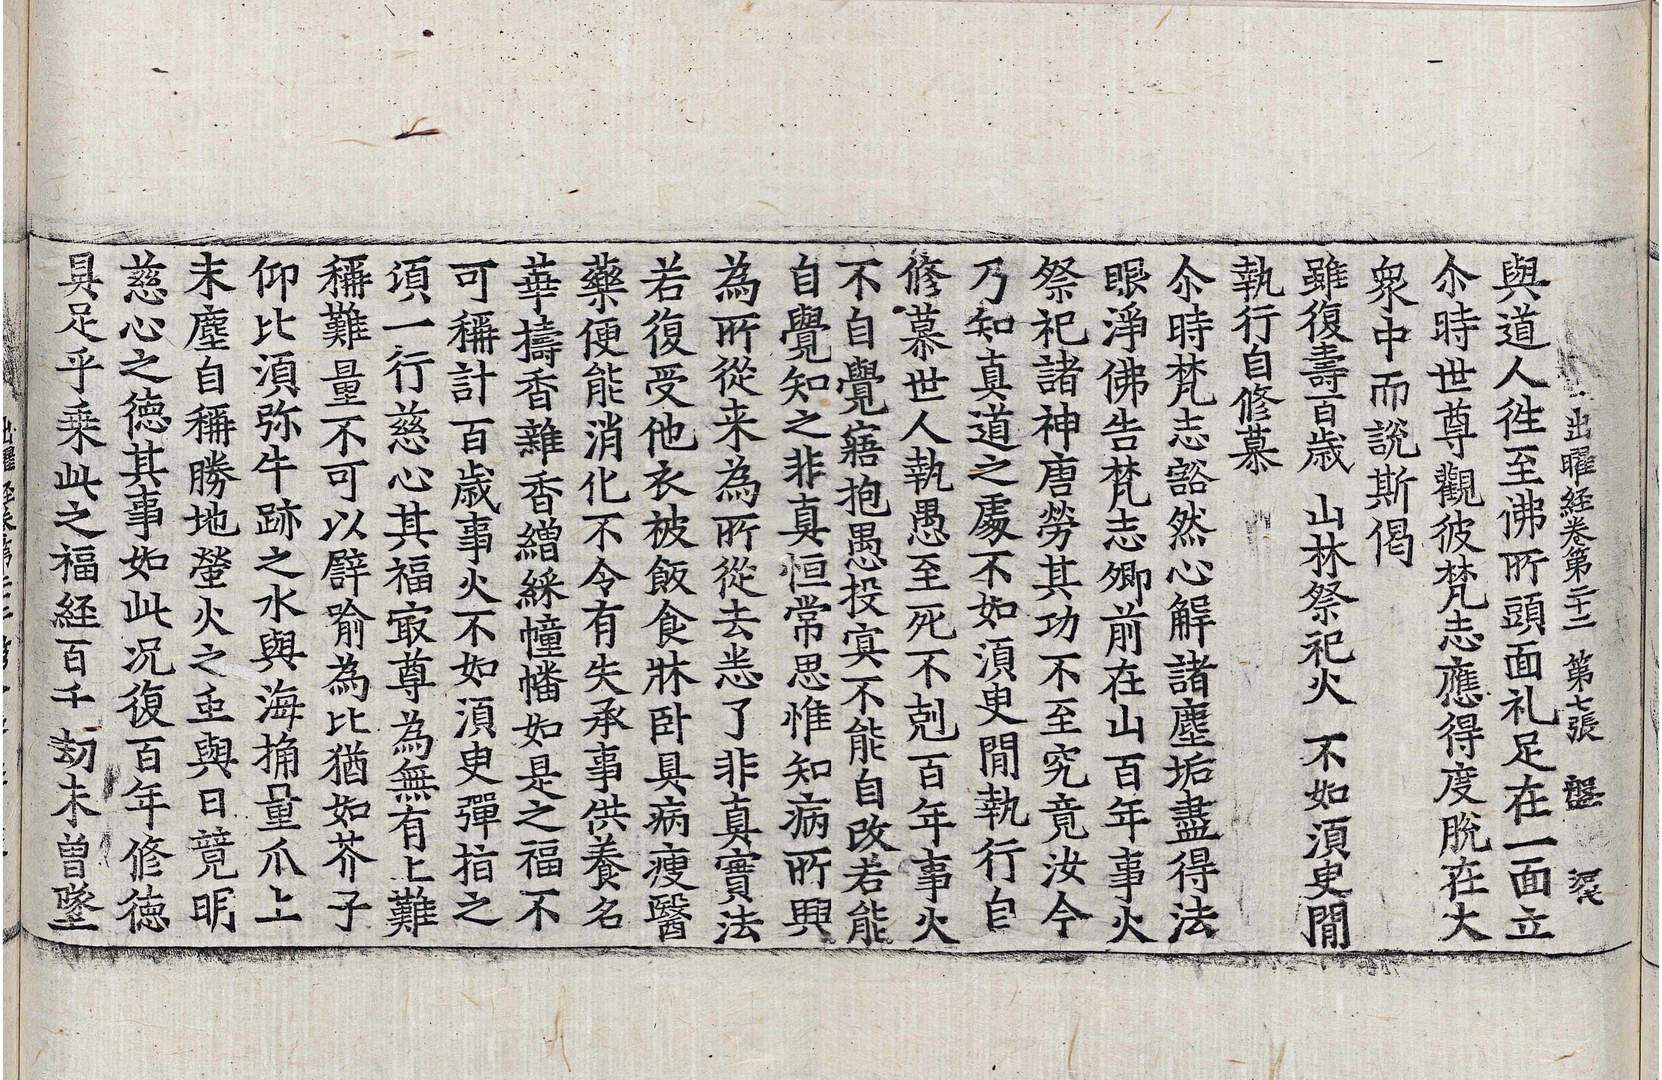 出曜經卷第二十二 第七張 盤
與道人往至佛所頭面礼足在一面立
尒時世尊觀彼梵志應得度脫在大
衆中而說斯偈
雖復壽百歲 山林祭祀火 不如須臾閒
執行自修慕
尒時梵志豁然心解諸塵垢盡得法
眼淨佛告梵志卿前在山百年事火
祭祀諸神唐勞其功不至究竟汝今
乃知真道之處不如須臾閒執行自
修慕世人執愚至死不剋百年事火
不自覺寤抱愚投冥不能自改若能
自覺知之非真恒常思惟知病所興
為所從来為所從去悉了非真實法
若復受他衣被飯食牀卧具病瘦醫
藥便能消化不令有失承事供養名
華擣香雜香繒綵幢幡如是之福不
可稱計百歲事火不如須臾彈指之
頃一行慈心其福冣尊為無有上難
稱難量不可以譬喻為比猶如芥子
仰比須弥牛跡之水與海捔量爪上
末塵自稱勝地螢火之虫與日競明
慈心之德其事如此况復百年修德
具足乎乗此之福経百千劫未曽墜